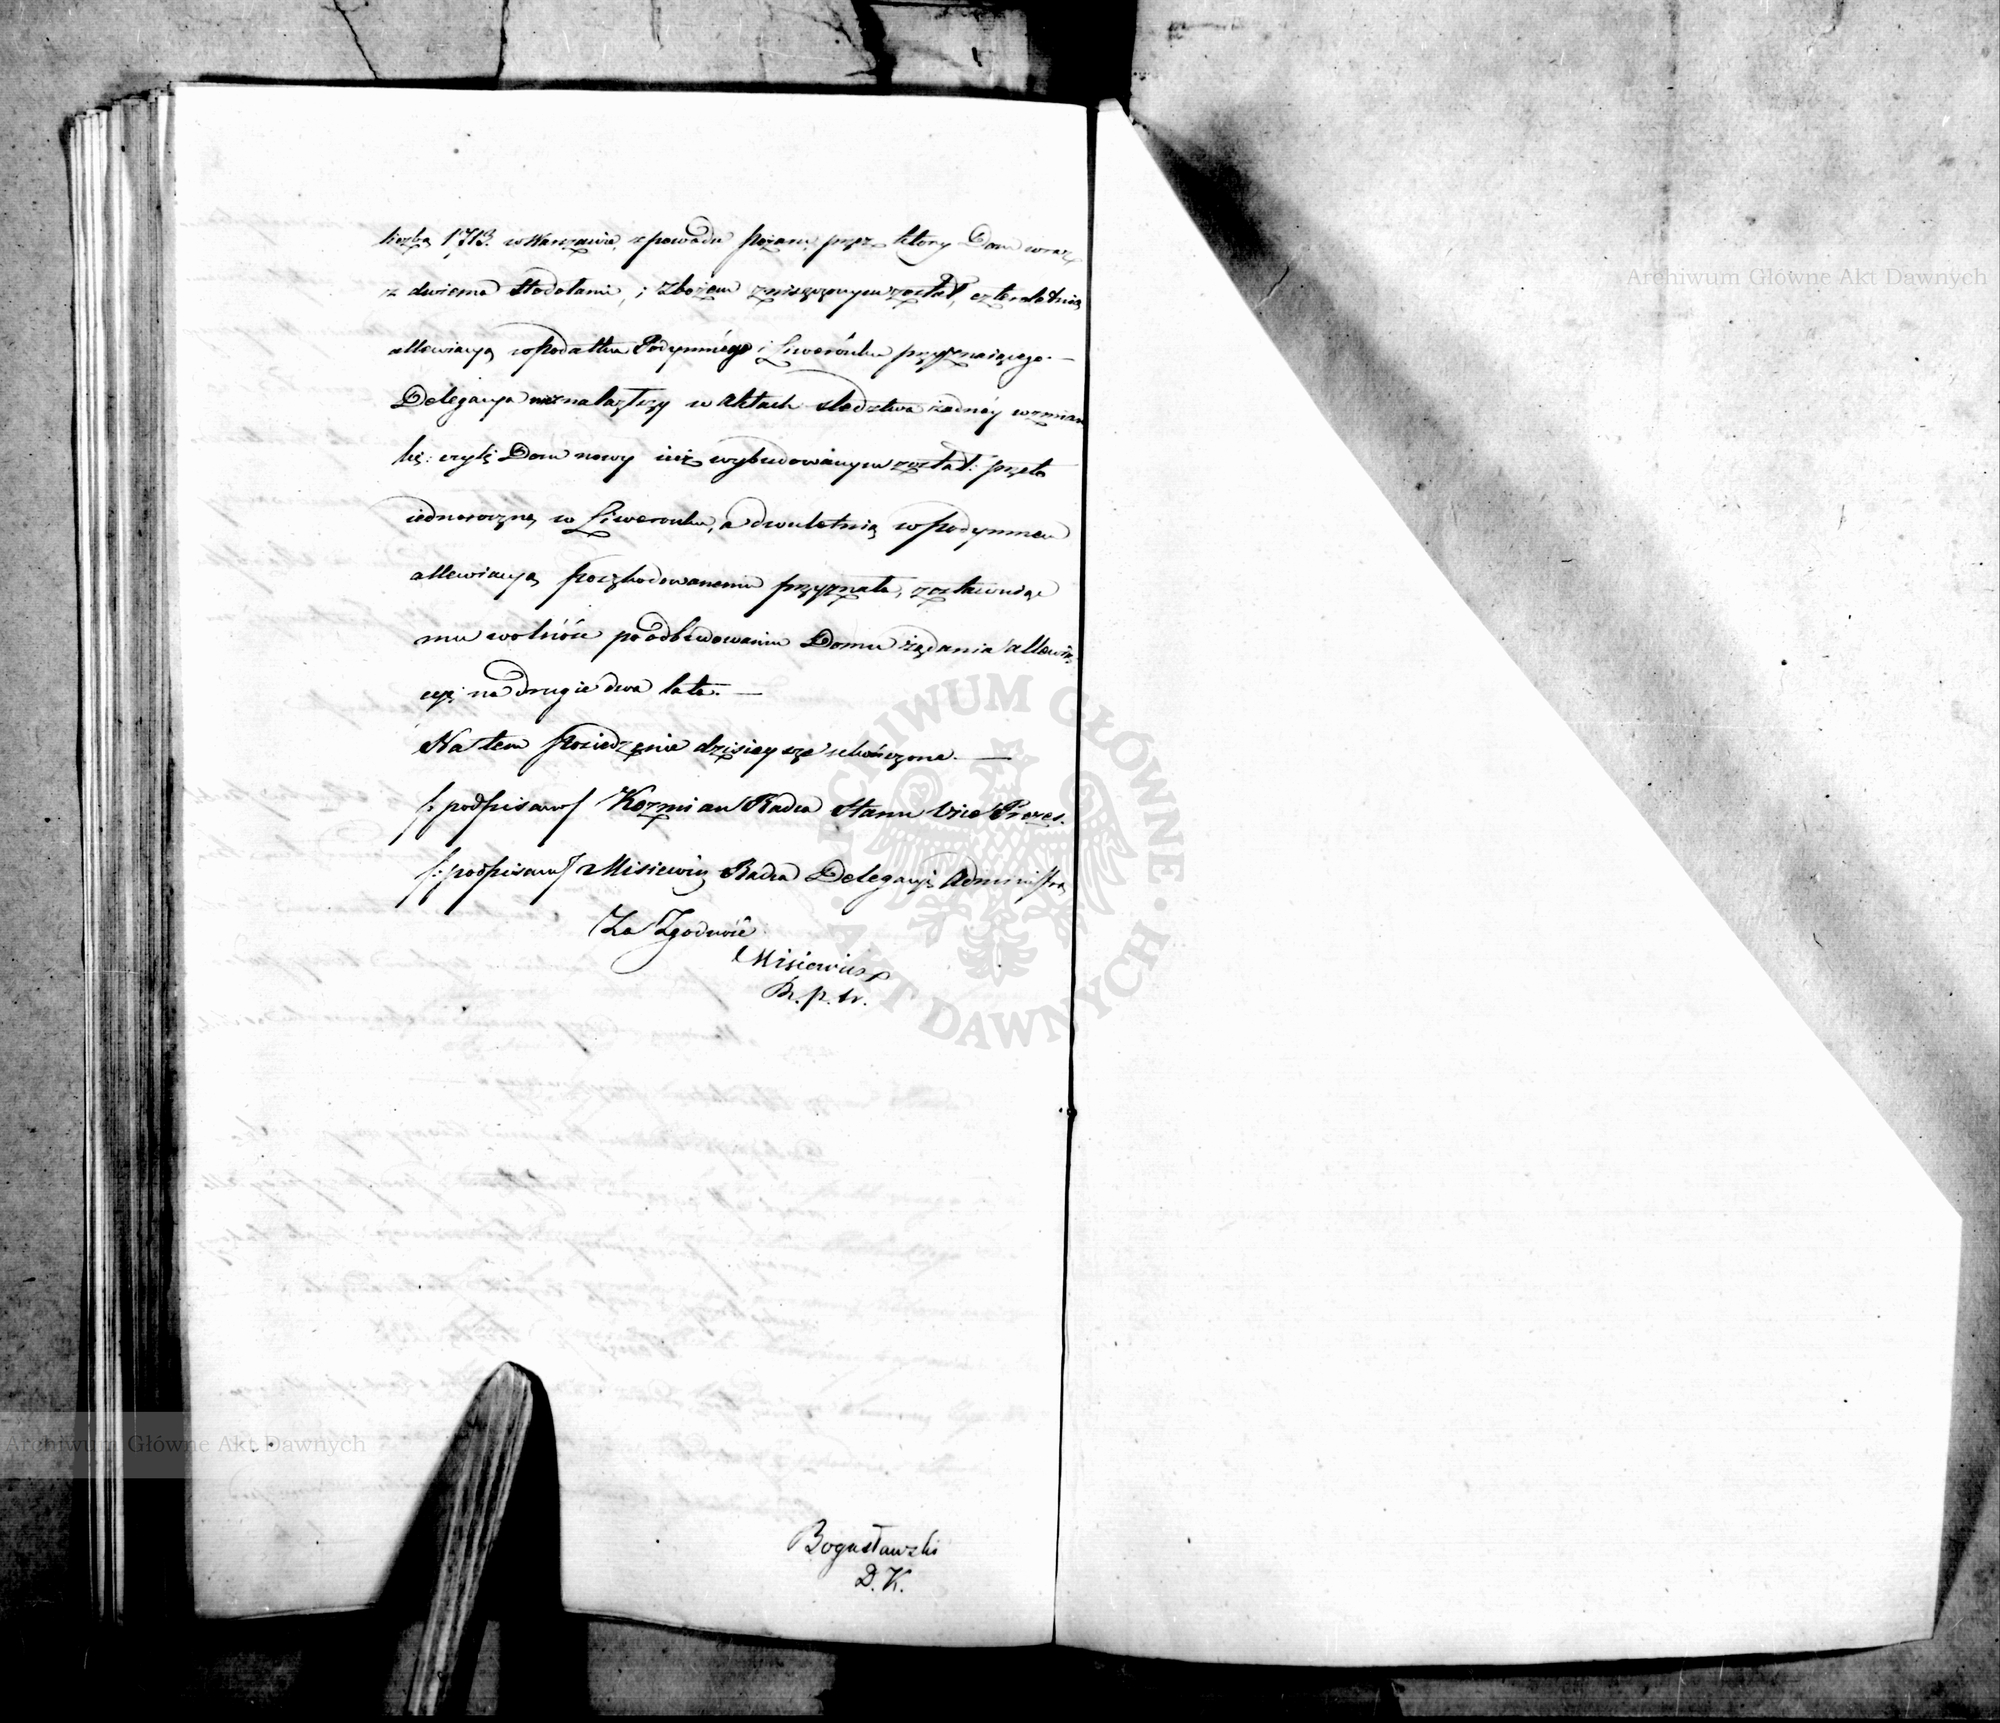 liczbą 1713. w Warszawie, z powodu pożaru, przez który Dom wraz
z dwiema stodołami, i zbożem zniszczonym został, czteroletnią
allewiacyą w podatku Podymnégo i Liwerunku przyznaiącego. —
Delegacya nieznalazłszy w aktach śledztwa żadnéy wzmian
ki: czyli Dom nowy iuż wybudowanym został: przeto
iednoroczną w Liwerunku, a dwuletnią w podymnem
allewiacyą poszkodowanemu przyznała, zostawuiąc
mu wolność po odbudowaniu Domu żądania allewia
cyi na drugie dwa lata. —
Na tem posiedzenie dzisieysze skończone. —
/: podpisano/ Kozmian Radca Stanu Vice Prezes.
/: podpisano/ Misiewicz Radca Delegacyi Administra
Za Zgodność
Misiewicz
Bogusławski
D. K.
Archiwum Główne Akt Dawnych
Archiwum Główne Akt Dawnych
ARCHIWUM GŁÓWNE · AKT DAWNYCH ·